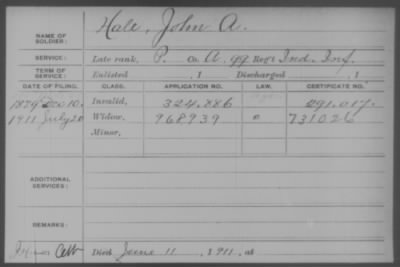 NAME OF SOLDIER: Hale, John A.
SERVICE: Late rank, P. Co. A, 99 Reg't Ind. Inf.
TERM OF SERVICE: Enlisted , 1 Discharged , 1
DATE OF FILING. CLASS. APPLICATION NO. LAW. CERTIFICATE NO.
1879 Dec 10. Invalid, 324.886 291.017.
1911 July 20 Widow, 968939 731026
Minor,
ADDITIONAL SERVICES:
REMARKS:
Died June 11, 1911, at